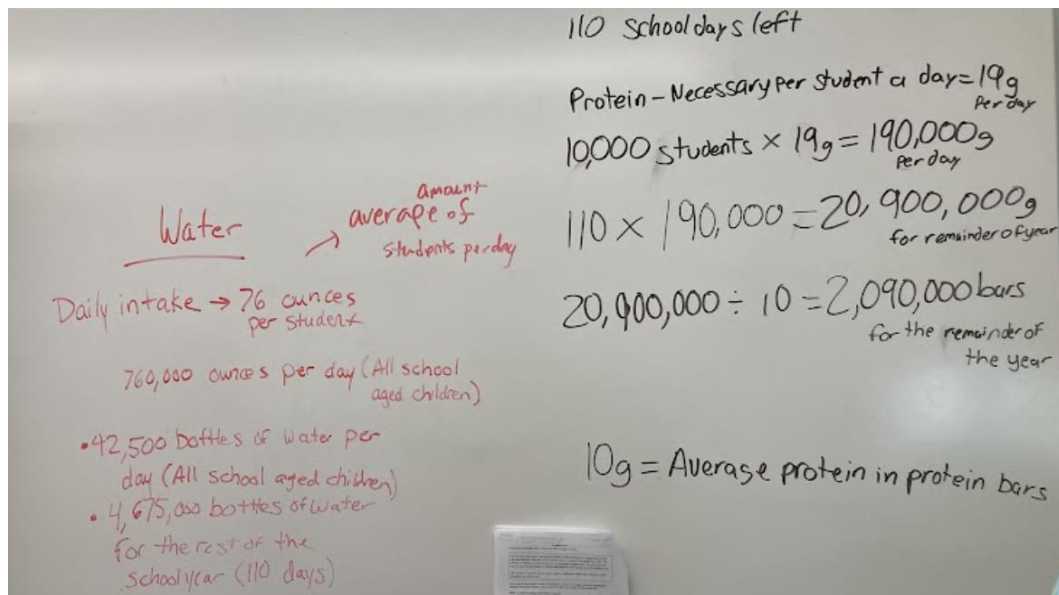 Water
amount
average of
students per day
Daily intake → 76 ounces
per student
760,000 ounces per day (All school
aged children)
• 42,500 bottles of water per
day (All school aged children)
• 4,675,000 bottles of water
for the rest of the
school year (110 days)
110 school days left
Protein - Necessary per student a day = 19g
per day
10,000 students × 19g = 190,000g
per day
110 × 190,000 = 20,900,000g
for remainder of year
20,900,000 ÷ 10 = 2,090,000 bars
for the remainder of
the year
10g = Average protein in protein bars